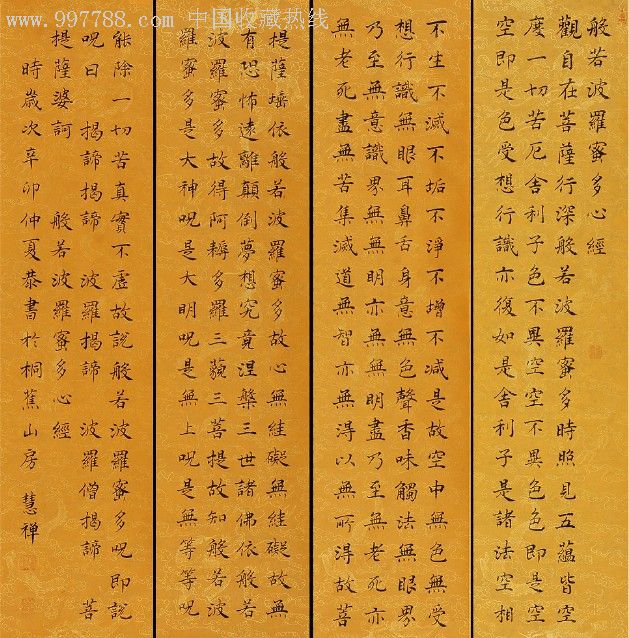 www.997788.com 中国收藏热线
般若波羅蜜多心經
觀自在菩薩行深般若波羅蜜多時照見五蘊皆空
度一切苦厄舍利子色不異空空不異色色即是空
空即是色受想行識亦復如是舍利子是諸法空相
不生不滅不垢不淨不增不減是故空中無色無受
想行識無眼耳鼻舌身意無色聲香味觸法無眼界
乃至無意識界無無明亦無無明盡乃至無老死亦
無老死盡無苦集滅道無智亦無得以無所得故菩
提薩埵依般若波羅蜜多故心無罣礙無罣礙故無
有恐怖遠離顛倒夢想究竟涅槃三世諸佛依般若
波羅蜜多故得阿耨多羅三藐三菩提故知般若波
羅蜜多是大神咒是大明咒是無上咒是無等等咒
能除一切苦真實不虛故說般若波羅蜜多咒即說
咒曰 揭諦揭諦 波羅揭諦 波羅僧揭諦 菩
提薩婆訶 般若波羅蜜多心經
時歲次辛卯仲夏恭書於桐蕉山房 慧禅